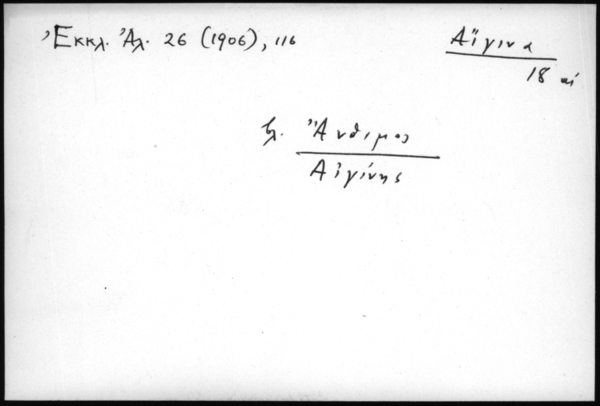 Ἐκκλ. Ἀλ. 26 (1906), 116
Αἴγινα
18 αἰ
βλ. Ἄνθιμος
Αἰγίνης